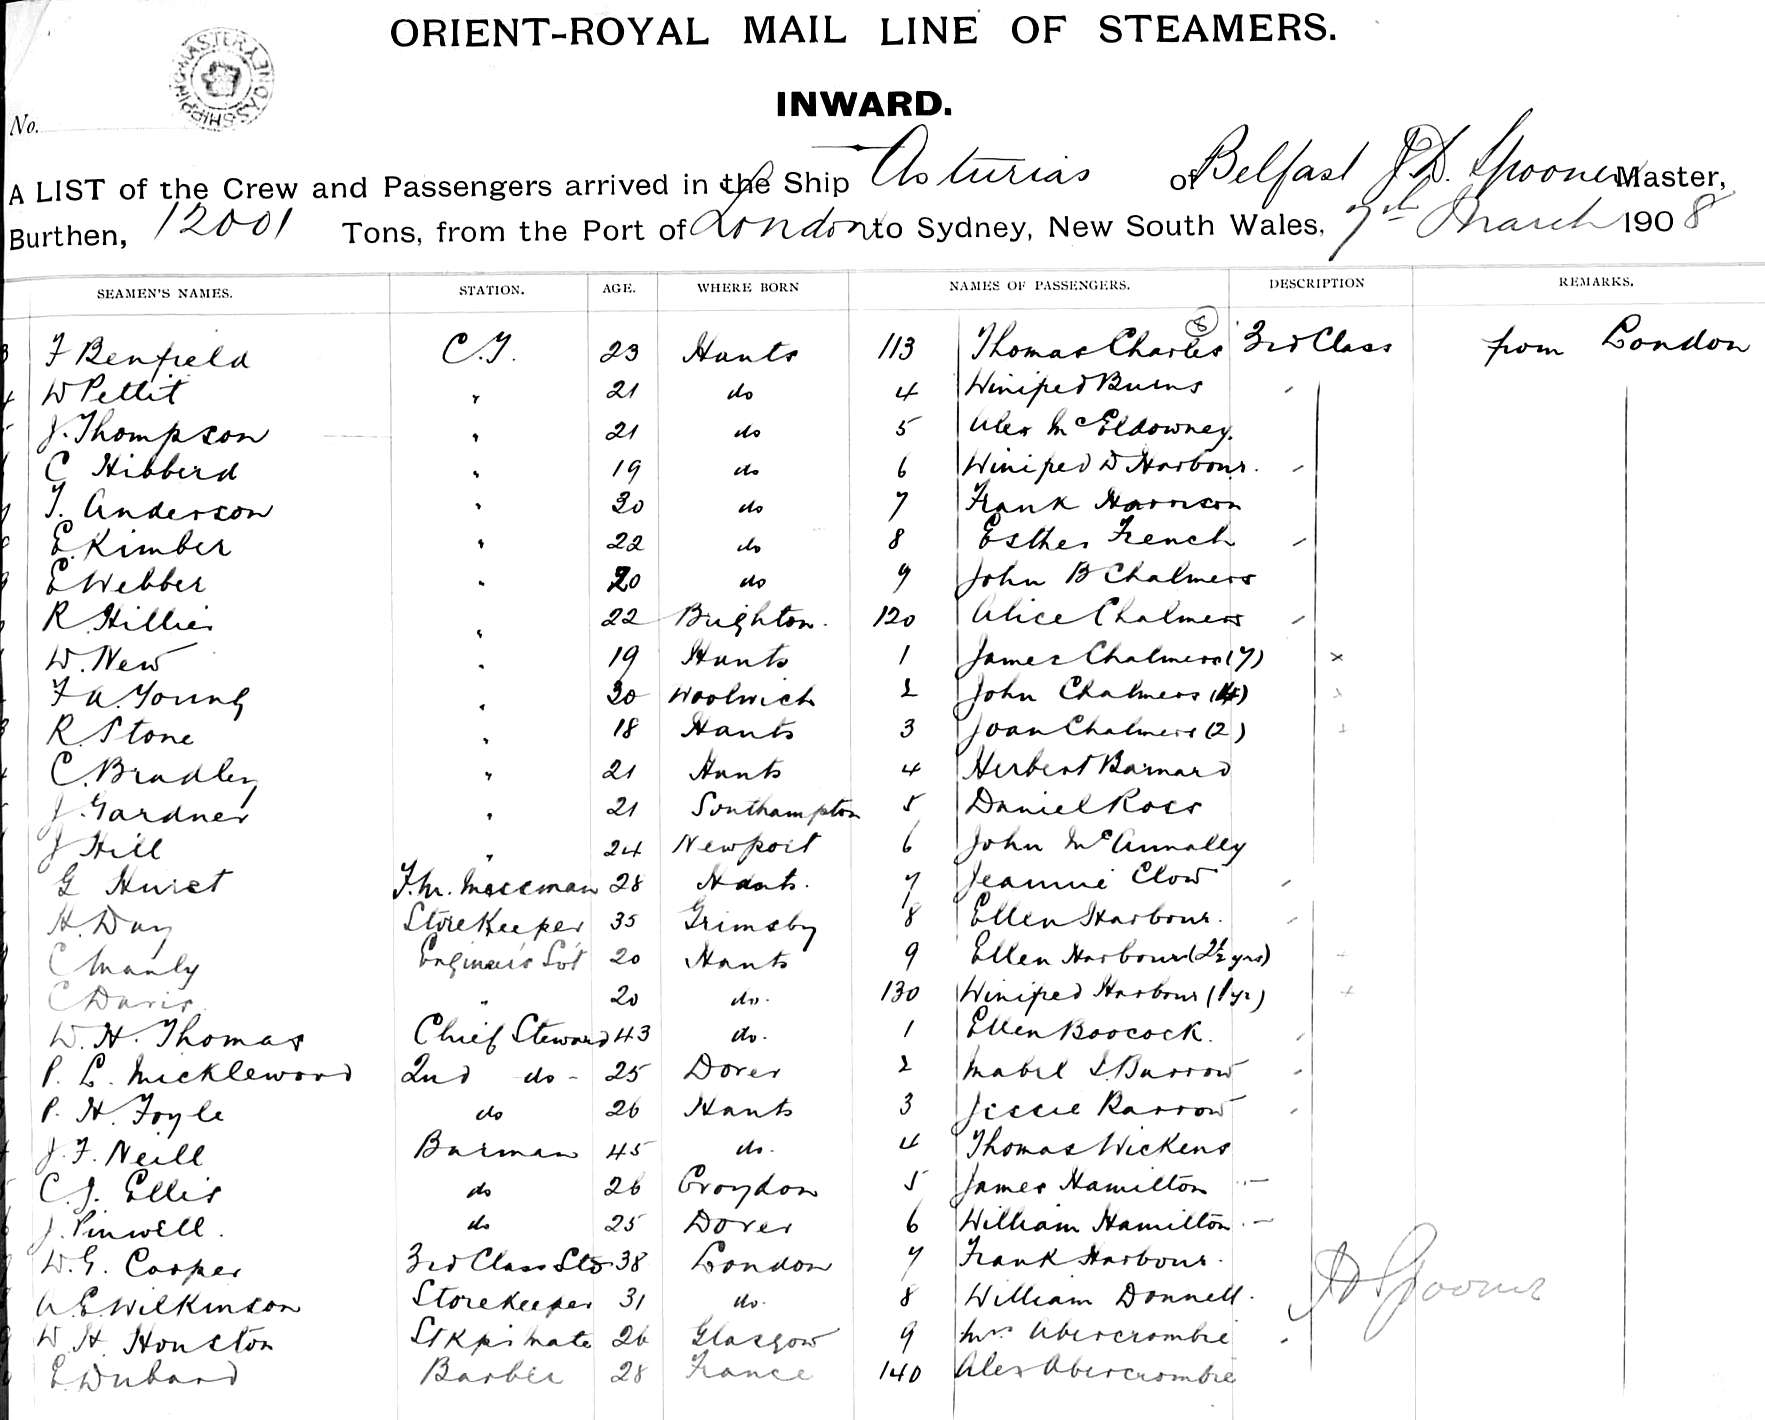 ORIENT-ROYAL MAIL LINE OF STEAMERS.
INWARD.
No.
A LIST of the Crew and Passengers arrived in the Ship Asturias of Belfast J D. Spooner Master,
Burthen, 12001 Tons, from the Port of London to Sydney, New South Wales, 7th March 1908
SEAMEN'S NAMES. STATION. AGE. WHERE BORN NAMES OF PASSENGERS. DESCRIPTION REMARKS.
F Benfield C.T. 23 Hants 113 Thomas Charles 3rd Class from London
W Pettit " 21 do 4 Winifred Burns
J. Thompson " 21 do 5 Alex McEldowney.
C Hibberd " 19 do 6 Winifred D Harbour.
T. Anderson " 30 do 7 Frank Harrison
E. Kimber " 22 do 8 Esther French
E Webber " 20 do 9 John B Chalmers
R. Hillier " 22 Brighton. 120 Alice Chalmers
W. New " 19 Hants 1 James Chalmers (7) x
F A. Young " 30 Woolwich 2 John Chalmers (4) x
R. Stone " 18 Hants 3 Joan Chalmers (2) x
C. Bradley " 21 Hants 4 Herbert Barnard
J. Gardner " 21 Southampton 5 Daniel Ross
J Hill " 24 Newport 6 John McAnnally
G Hurst F.m. Messman 28 Hants. 7 Jeannie Clow
H. Day Storekeeper 35 Grimsby 8 Ellen Harbour.
C Manly Engineer's 20 Hants 9 Ellen Harbour (2½ yrs) x
C Davis. " 20 do. 130 Winifred Harbour (1 yr) x
W. H. Thomas Chief Steward 43 do. 1 Ellen Boocock.
P. L. Micklewood 2nd do - 25 Dover 2 Mabel S. Barrow
P. H. Foyle do 26 Hants 3 Jessie Barrow
J. F. Neill Barman 45 do. 4 Thomas Wickens
C. J. Ellis do 26 Croydon 5 James Hamilton
J. Pinwell. do 25 Dover 6 William Hamilton
W. G. Cooper 3rd Class Std 38 London 7 Frank Harbour.
A E. Wilkinson Storekeeper 31 do. 8 William Donnell.
W H. Houston Stkprs mate 26 Glasgow 9 Mrs Abercrombie
E. Dubard Barber 28 France 140 Alex Abercrombie
J D Spooner